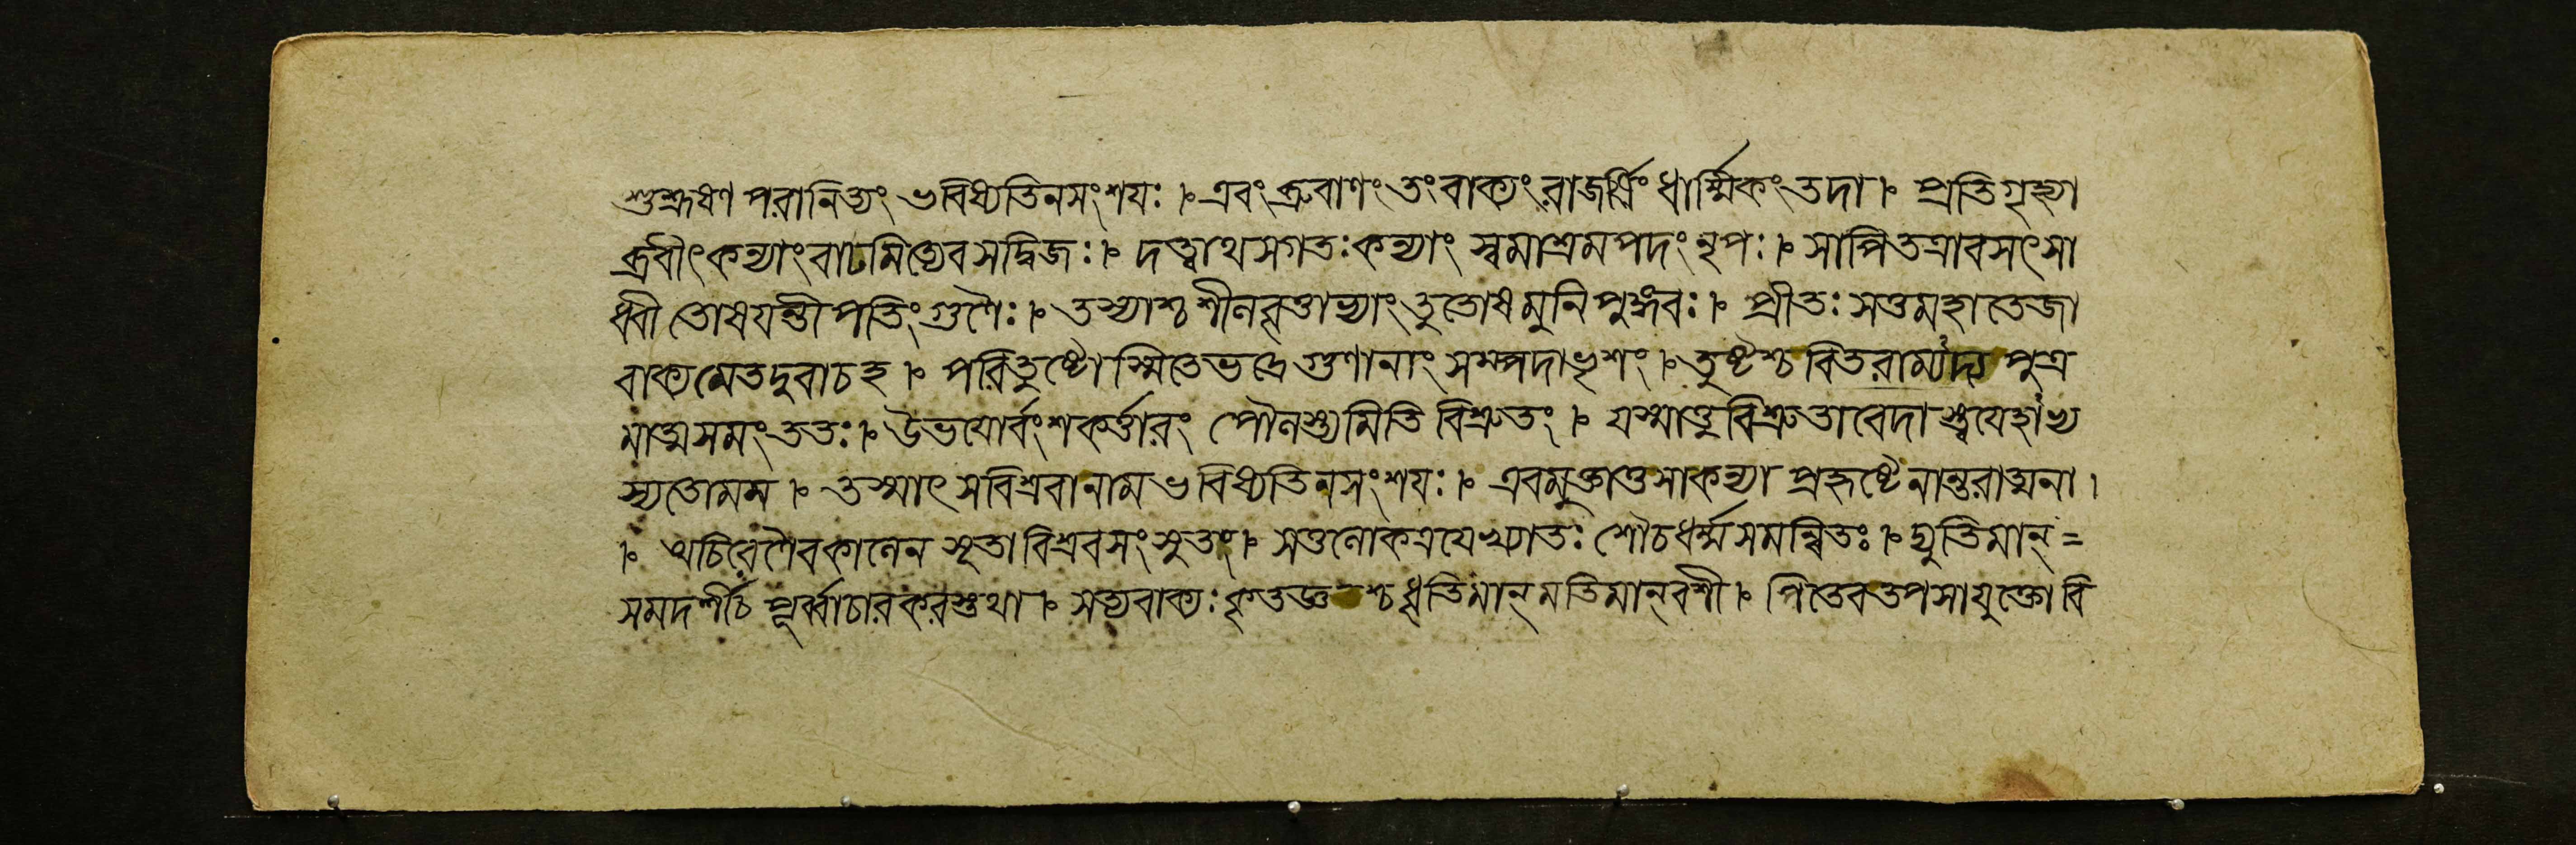 শুশ্রূষণ পরানিত্যং ভবিষ্যতিনসংশযঃ ৷৹ এবং ব্রুবাণং তংবাক্যং রাজর্ষিং ধার্ম্মিকং তদা ৷৹ প্রতিগৃহ্যা
ব্রবীৎকন্যাংবাঢমিত্যেব সদ্বিজঃ ৷৹ দত্ত্বাথ সগতঃকন্যাং স্বমাশ্রমপদং নৃপঃ ৷৹ সাপিতত্রাবসৎসা
ধ্বী তোষযন্তী পতিং গুণৈঃ ৷৹ তস্যাশ্চ শীলবৃত্তাভ্যাং তুতোষ মুনি পুঙ্গবঃ ৷৹ প্রীতঃ সতুমহাতেজা
বাক্যমেতদুবাচহ ৷৹ পরিতুষ্টোস্মিতেভদ্রে গুণানাং সম্পদাভৃশং ৷৹ তুষ্টশ্চ বিতরাম্যদ্য পুত্র
মাত্মসমংততঃ ৷৹ উভযোর্বংশকর্ত্তারং পৌলস্ত্যমিতি বিশ্রুতং ৷৹ যস্মাত্তু বিশ্রুতাবেদা স্ত্বযেহাখ্য
স্যতোমম ৷৹ তস্মাৎ সবিশ্রবানাম ভবিষ্যতিনসংশযঃ ৷৹ এবমুক্তাতুসাকন্যা প্রহৃষ্টেনান্তরাত্মনা ৷
৷৹ অচিরেণৈবকালেন সূতা বিশ্রবসং সুতং ৷৹ সতুলোকত্রযেখ্যাতঃ শৌচধর্ম্মসমন্বিতঃ ৷৹ দ্যুতিমান্ =
সমদর্শীচ পূর্ব্বাচারকরস্তথা ৷৹ সত্যবাক্যঃ কৃতজ্ঞশ্চ ধৃতিমান্ মতিমান্ বশী ৷৹ পিতেব তপসাযুক্তো বি